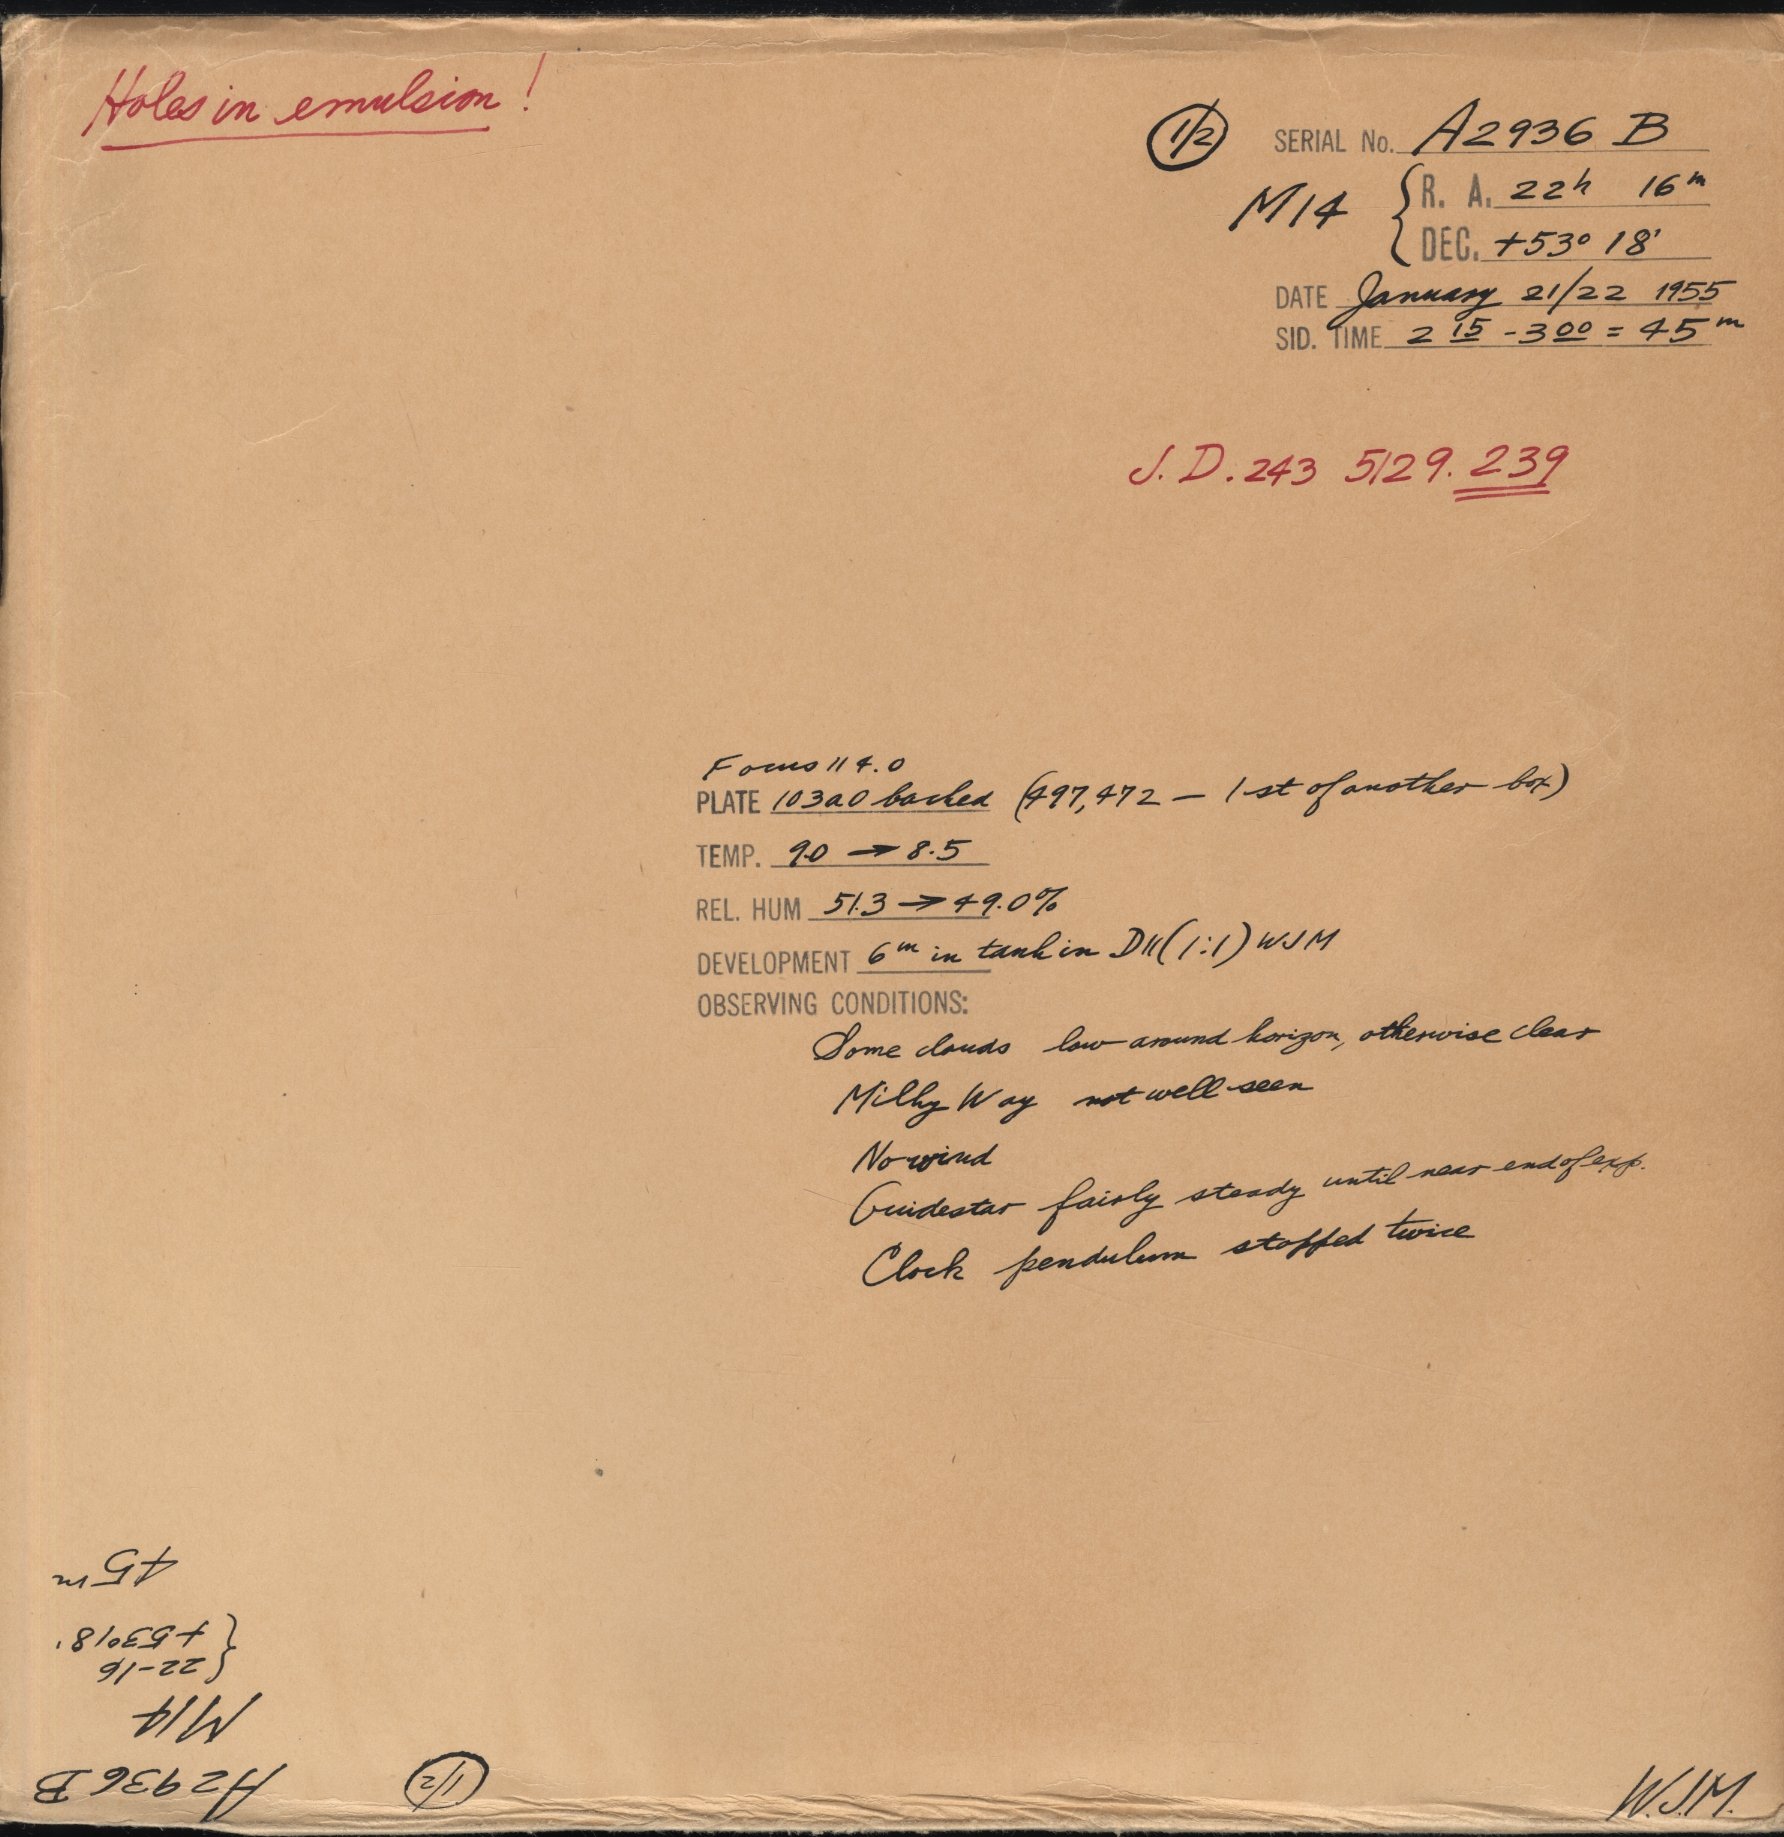 Holes in emulsion!
1/2 SERIAL No. A2936 B
M14 { R. A. 22h 16m
DEC. +53° 18'
DATE January 21/22 1955
SID. TIME 2 15 - 3 00 = 45m
J. D. 243 5129.239
Focus 114.0
PLATE 103aO backed (497,472 — 1st of another box)
TEMP. 9.0 → 8.5
REL. HUM 51.3 → 49.0%
DEVELOPMENT 6m in tank in D11 (1:1) WJM
OBSERVING CONDITIONS:
Some clouds low around horizon, otherwise clear
Milky Way not well seen
No wind
Guidestar fairly steady until near end of exp.
Clock pendulum stopped twice
W.J.M.
1/2
A2936 B
M14
{ 22-16
+53°18'
45m